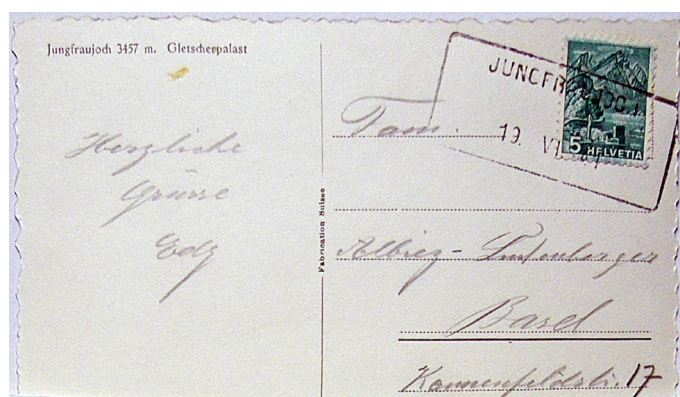 Jungfraujoch 3457 m. Gletscherpalast
Herzliche
Grüsse
Edg
Fabrication Suisse
JUNGFRAUJOCH
19. VI. 41
5 HELVETIA
Fam.
Albiez-
Basel
Kannenfeldstr. 17